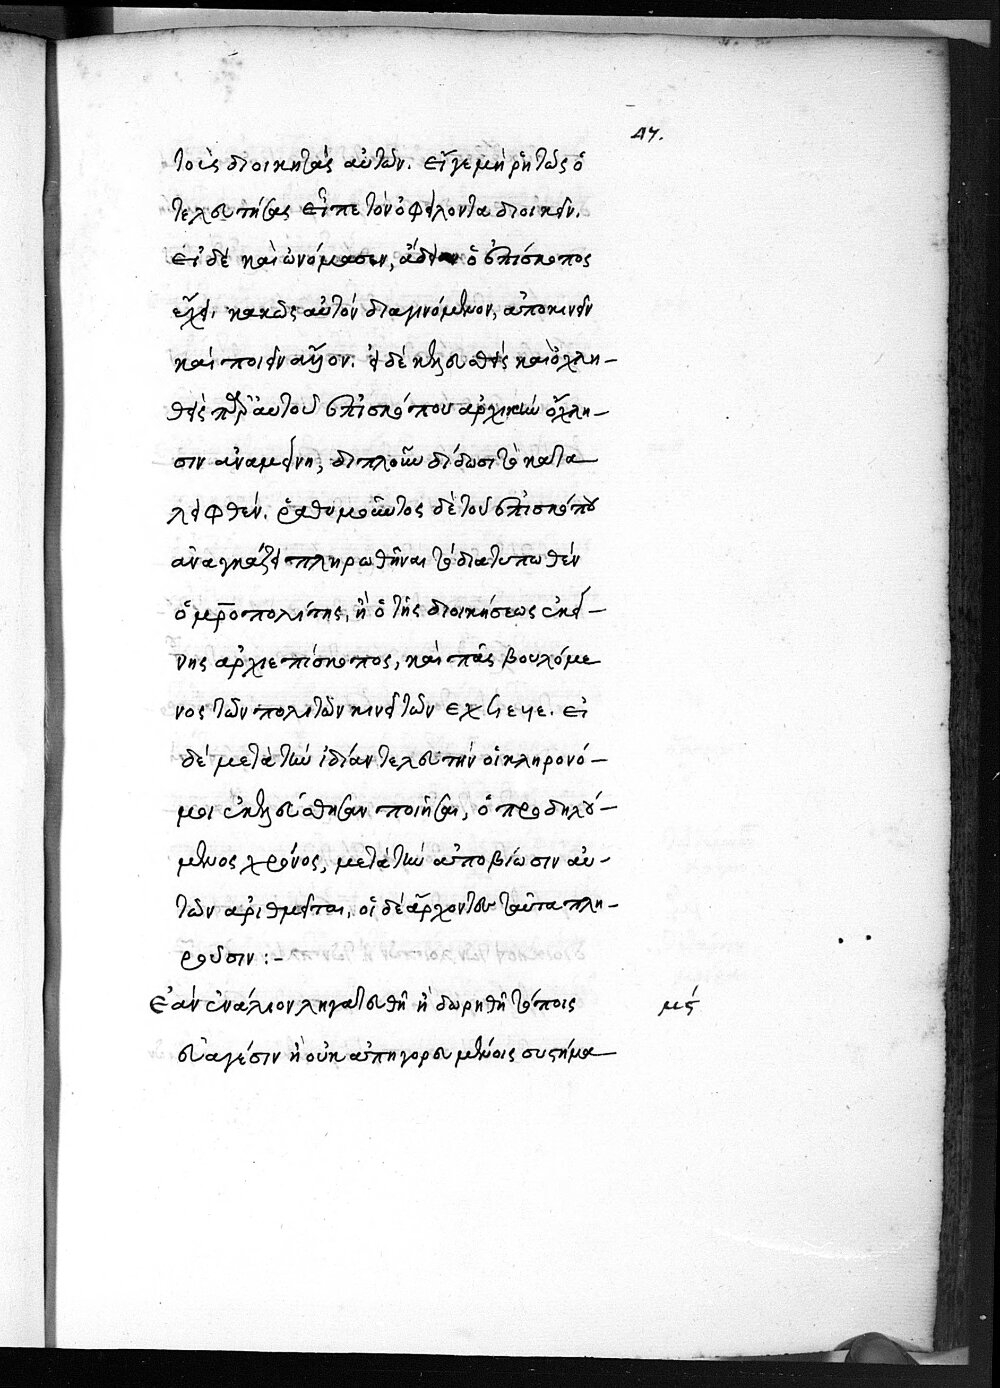 47.
τοὺς διοικητὰς αὐτῶν. εἴγε μὴ ῥητῶς ὁ
τελευτήσας εἶπε τὸν ὀφείλοντα διοικεῖν.
εἰ δὲ καὶ ὠνόμασεν, ἄδειαν ὁ ἐπίσκοπος
ἔχει κακῶς αὐτὸν διαγινόμενον, ἀποκινεῖν
καὶ ποιεῖν ἄλλον. ὁ δὲ κελευσθεὶς καὶ ὀχλη-
θεὶς παρὰ τοῦ ἐπισκόπου ἀρχικὴν ὄχλη-
σιν ἀναμείνῃ, διπλοῦν δίδωσι τὸ κατα
λειφθέν. ῥαθυμοῦντος δὲ τοῦ ἐπισκόπου
ἀναγκάζει πληρωθῆναι τὸ διατυπωθὲν
ὁ μητροπολίτης, ἢ ὁ τῆς διοικήσεως ἐκεί-
νης ἀρχιεπίσκοπος, καὶ πᾶς βουλόμε
νος τῶν πολιτῶν κινεῖ τὸν ex lege. εἰ
δὲ μετὰ τὴν ἰδίαν τελευτὴν οἱ κληρονό-
μοι ἐκελεύσθησαν ποιῆσαι, ὁ προδηλού-
μενος χρόνος, μετὰ τὴν ἀποβίωσιν αὐ-
τῶν ἀριθμεῖται, οἱ δὲ ἄρχοντες ταῦτα πλη-
ροῦσιν :-
Ἐὰν ἐνάλιον ληγατευθῇ ἢ δωρηθῇ τόποις
εὐαγέσιν ἢ οὐκ ἀπηγορευμένοις συστήμα-
μϛ